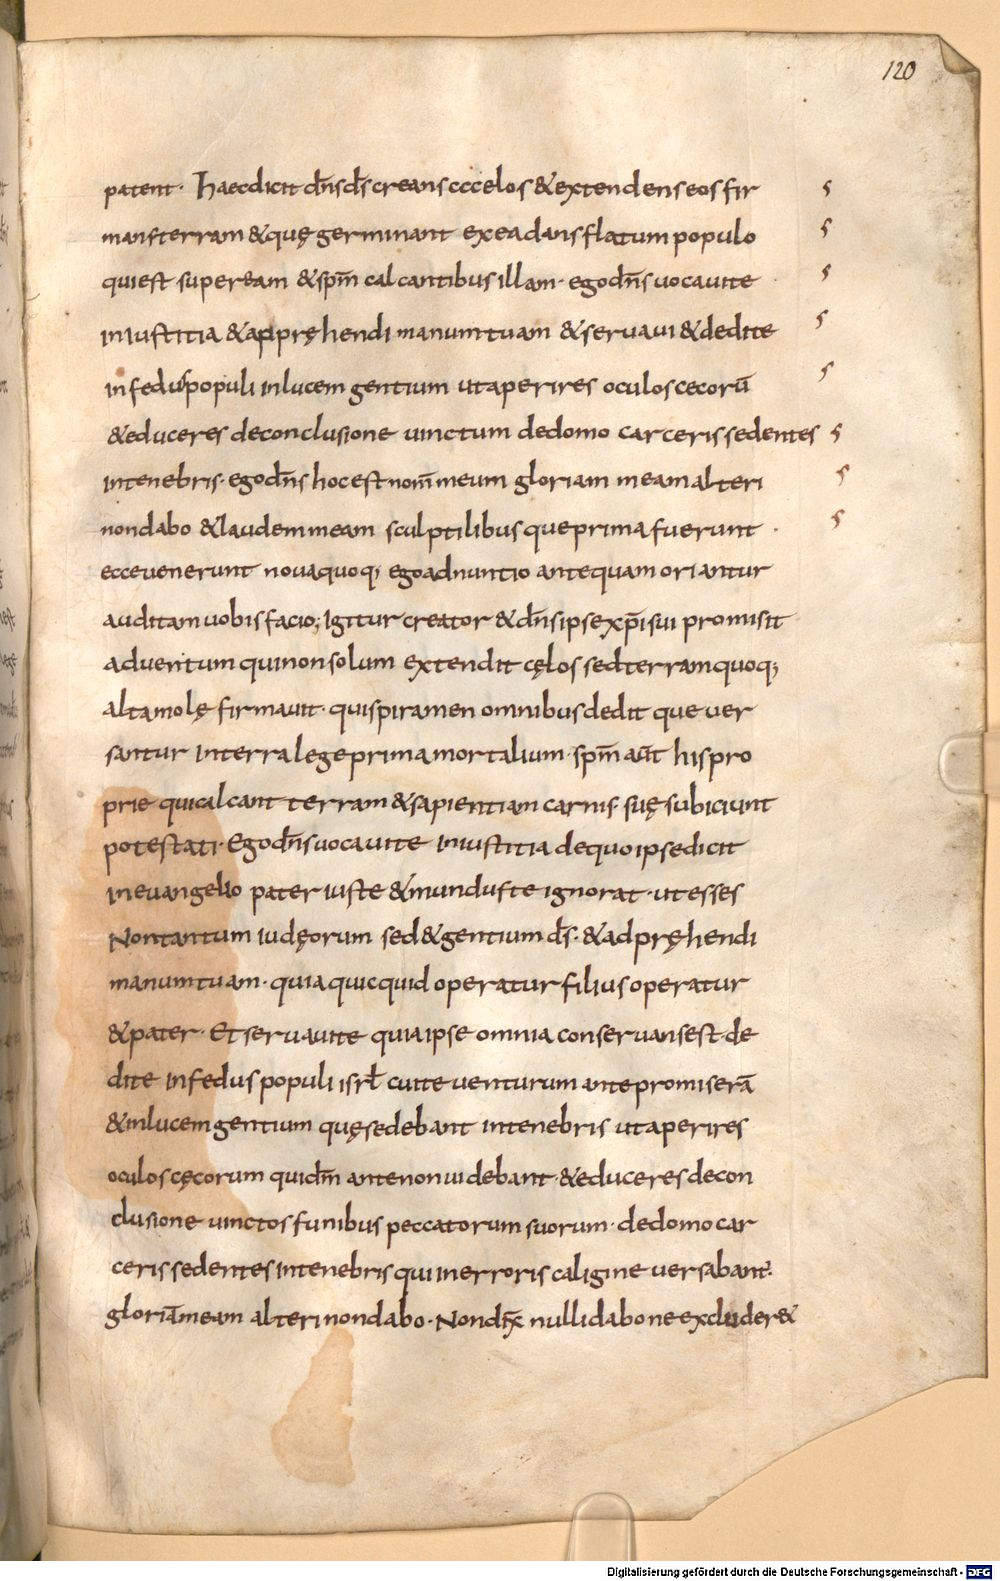 120
patent· Haecdicit dn̄s ds̄ creans cccelos & extendens eos fir
mans terram & quę germinant ex ea dans flatum populo
qui est super eam & spm̄ calcantibus illam· ego dn̄s vocavi te
in iustitia & appręhendi manum tuam & servavi & dedi te
in fedus populi in lucem gentium ut aperires oculos cecorū
& educeres de conclusione vinctum de domo carceris sedentes
in tenebris· ego dn̄s hoc est nom̄ meum gloriam meam alteri
non dabo & laudem meam sculptilibus que prima fuerunt ·
ecce venerunt nova quoq; ego adnuntio antequam oriantur
auditam vobis facio; Igitur creator & dn̄s ipse xp̄i sui promisit
adventum qui non solum extendit cęlos sed terram quoq;
alta molę firmavit· qui spiramen omnibus dedit que ver
santur in terra lege prima mortalium· spm̄ aūt his pro
prie qui calcant terram & sapientiam carnis suę subiciunt
potestati· Ego dn̄s vocavi te in iustitia de quo ipse dicit
in evangelio pater iuste & mundus te ignorat· ut esses
Non tantum iudęorum sed & gentium ds̄· & adpręhendi
manum tuam· quia quicquid operatur filius operatur
& pater· Et servavi te quia ipse omnia conservans est de
di te in fedus populi isrł cui te venturum ante promiserā
& in lucem gentium quę sedebant in tenebris ut aperires
oculos cęcorum qui dm̄ ante non videbant· & educeres de con
clusione vinctos funibus peccatorum suorum· de domo car
ceris sedentes in tenebris qui in erroris caligine versabant·
gloriā meam alteri non dabo· Non dix̄ nulli dabo ne excluder&
Digitalisierung gefördert durch die Deutsche Forschungsgemeinschaft - DFG